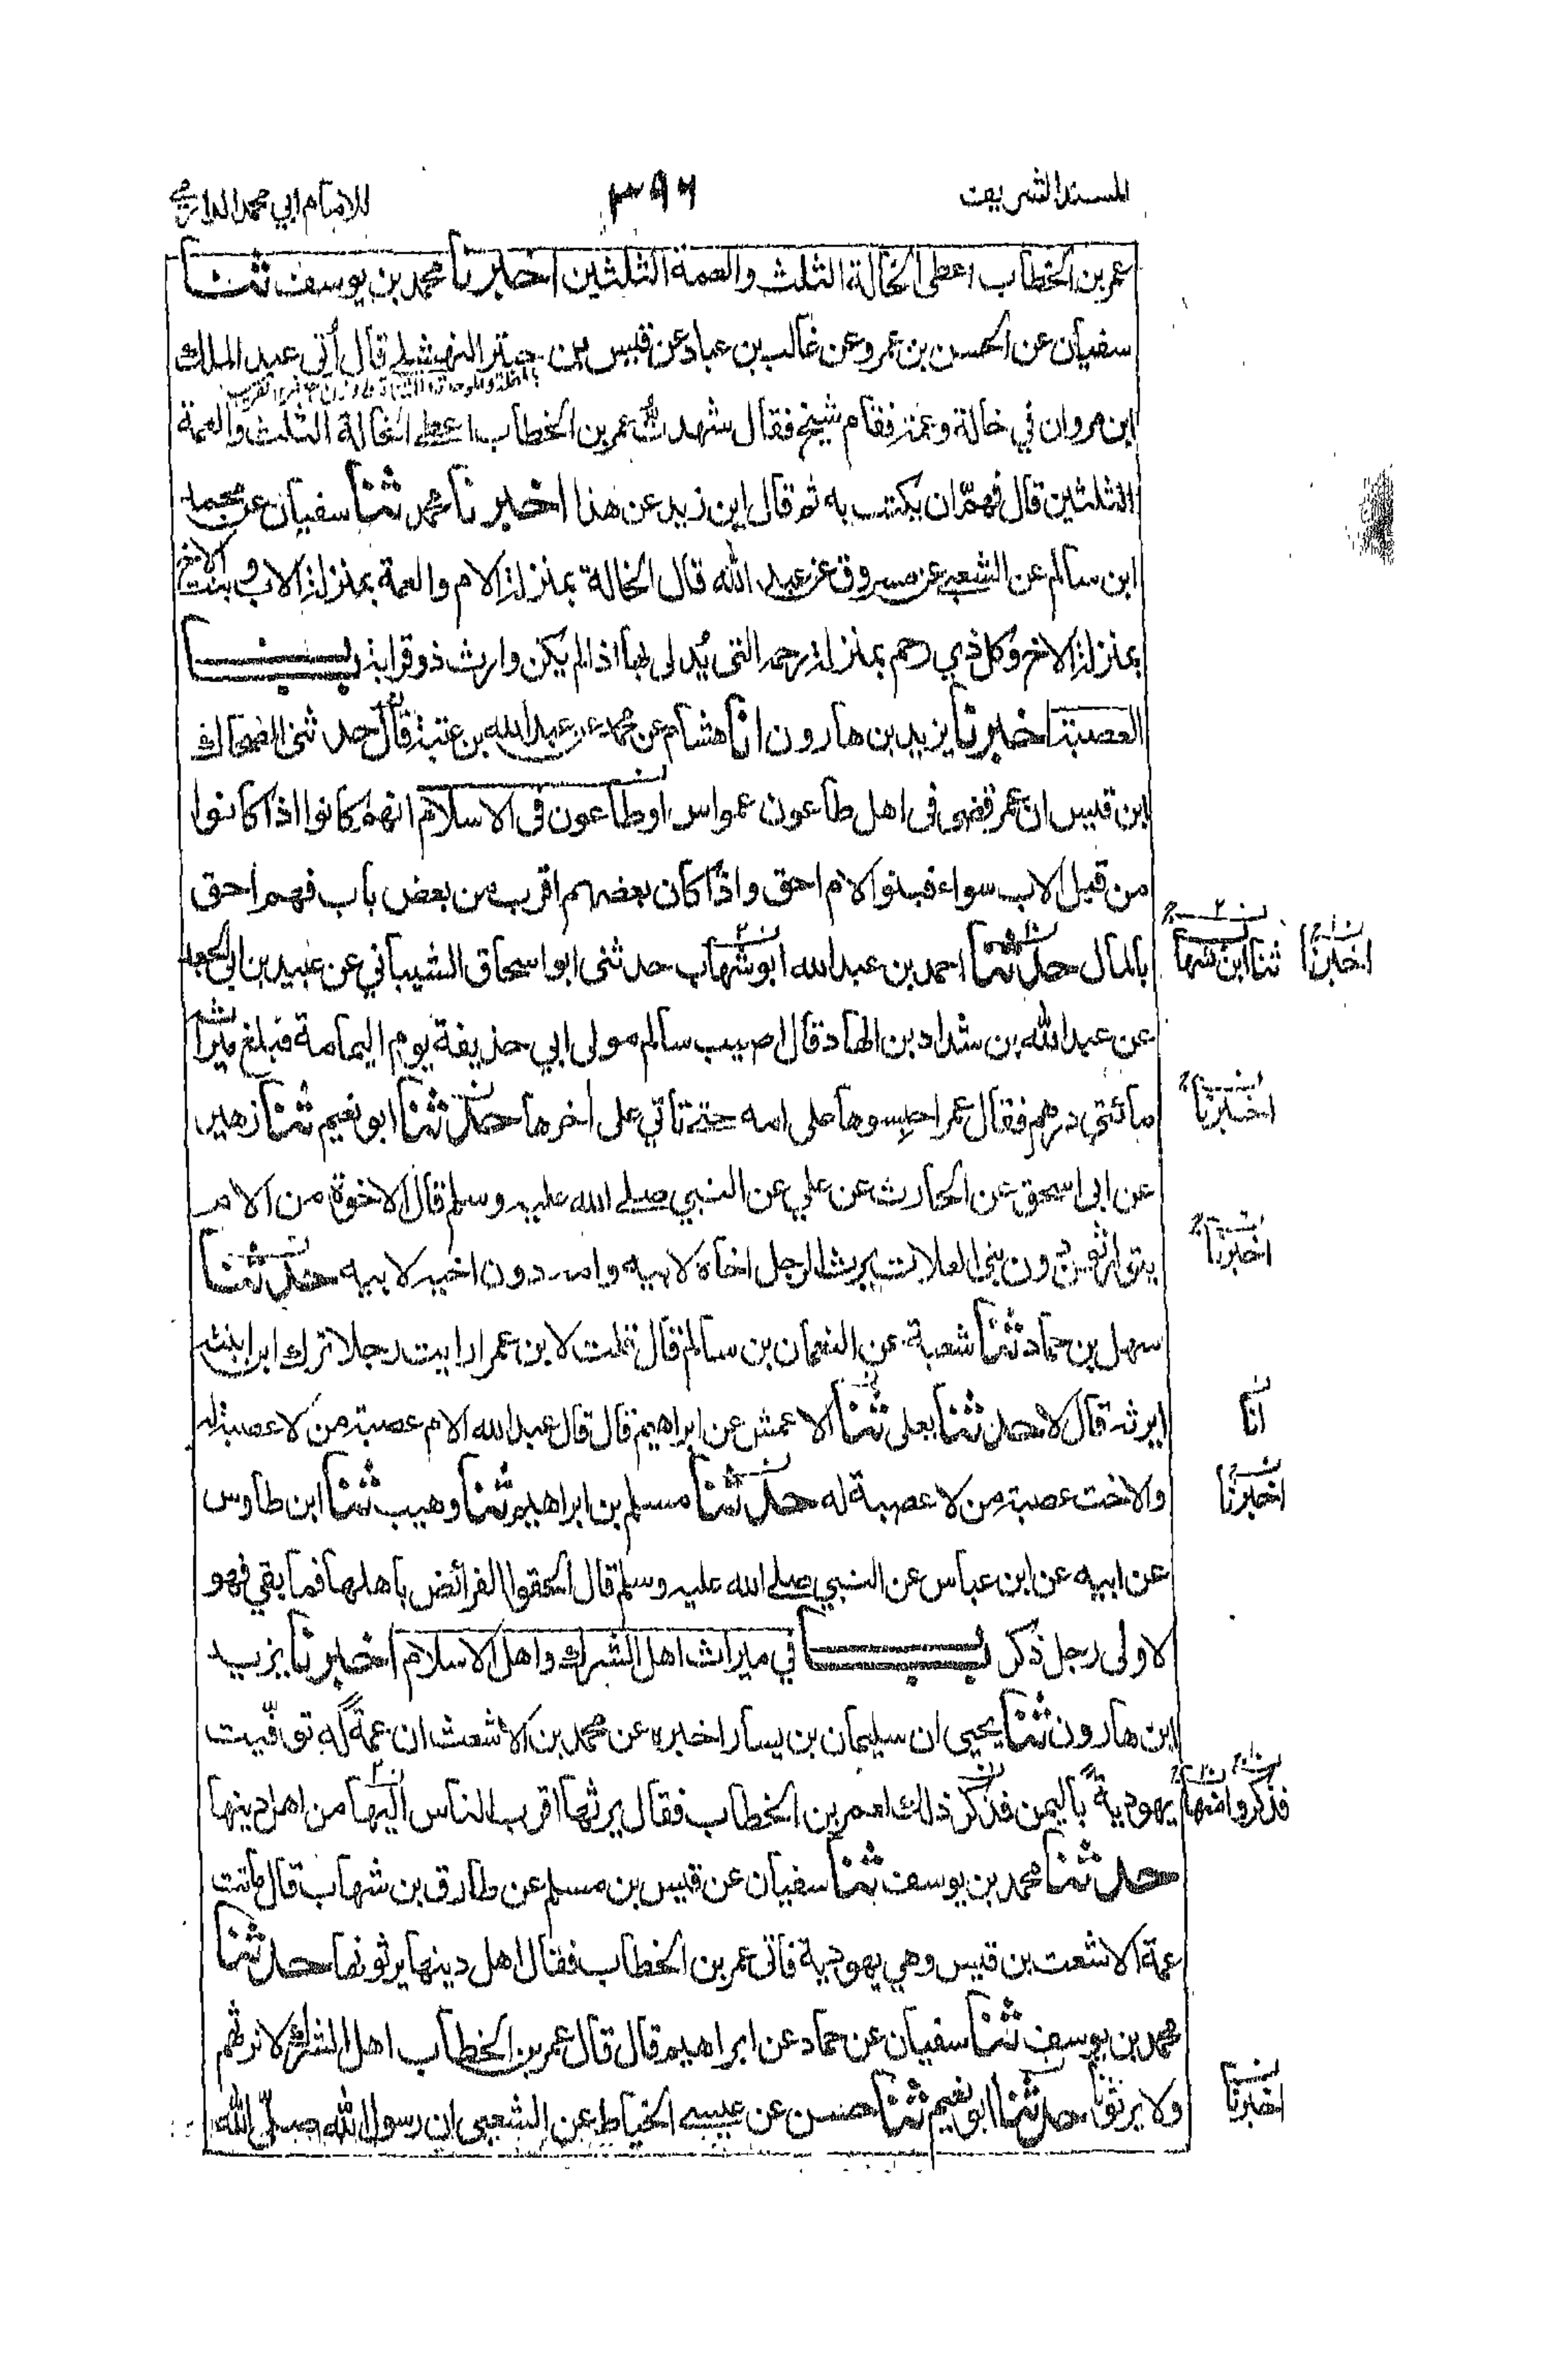 المسند الشريف ٣٩٦ للامام ابي محمد الدارمي
عمر بن الخطاب اعطى الخالة الثلث والعمة الثلثين اخبرنا محمد بن يوسف ثنا
سفيان عن الحسن بن عمرو عن غالب بن عباد عن قيس بن حبتر النهشلي قال أتي عبد الملك
ابن مروان في خالة وعمة فقام شيخ فقال شهدت عمر بن الخطاب اعطى الخالة الثلث والعمة
الثلثين قال فهمّ ان يكتب به ثم قال اين زيد عن هذا اخبرنا محمد ثنا سفيان عن محمد
ابن سالم عن الشعبي عن مسروق عن عبد الله قال الخالة بمنزلة الام والعمة بمنزلة الاب وبنت الاخ
بمنزلة الاخ وكل ذي رحم بمنزلة رحمه التي يُدلى بها اذا لم يكن وارث ذو قرابة باب
العصبة اخبرنا يزيد بن هارون انا هشام عن محمد عن عبد الله بن عتبة قال حدثني الضحاك
ابن قيس ان عمر قضى في اهل طاعون عمواس او طاعون في الاسلام انهم كانوا اذا كانوا
من قبل الاب سواء فبنو الام احق واذا كان بعضهم اقرب من بعض باب فهم احق
بالمال حدثنا احمد بن عبد الله ابو شهاب حدثني ابو اسحاق الشيباني عن عبيد بن ابي الجعد
ثنا ابن شها
اخبرنا
عن عبد الله بن شداد بن الهاد قال اصيب سالم مولى ابي حذيفة يوم اليمامة فبلغ ميراثه
مائتي درهم فقال عمر احبسوها على امه حتى تاتي على اخرها حدثنا ابو نعيم ثنا زهير
اخبرنا
عن ابي اسحق عن الحارث عن علي عن النبي صلى الله عليه وسلم قال الاخوة من الام
يتوارثون دون بني العلات يرث الرجل اخاه لابيه وامه دون اخيه لابيه حدثنا
اخبرنا
سهل بن حماد ثنا شعبة عن النعمان بن سالم قال قلت لابن عمر ارايت رجلا ترك ابن ابنته
ايرثه قال لا حدثنا يعلى ثنا الاعمش عن ابراهيم قال قال عبد الله الام عصبة من لا عصبة له
انا
والاخت عصبة من لا عصبة له حدثنا مسلم بن ابراهيم ثنا وهيب ثنا ابن طاوس
اخبرنا
عن ابيه عن ابن عباس عن النبي صلى الله عليه وسلم قال الحقوا الفرائض باهلها فما بقي فهو
لاولى رجل ذكر باب في ميراث اهل الشرك واهل الاسلام اخبرنا يزيد
ابن هارون ثنا يحيى ان سليمان بن يسار اخبره عن محمد بن الاشعث ان عمةً له توفّيت
يهوديةً باليمن فذكر ذلك لعمر بن الخطاب فقال يرثها اقرب الناس اليها من اهل دينها
فذكروا منها
حدثنا محمد بن يوسف ثنا سفيان عن قيس بن مسلم عن طارق بن شهاب قال ماتت
عمة الاشعث بن قيس وهي يهودية فاتى عمر بن الخطاب فقال اهل دينها يرثونها حدثنا
محمد بن يوسف ثنا سفيان عن حماد عن ابراهيم قال قال عمر بن الخطاب اهل الشرك لا نرثهم
ولا يرثونا حدثنا ابو نعيم ثنا حسن عن عيسى الخياط عن الشعبي ان رسول الله صلّى الله
اخبرنا